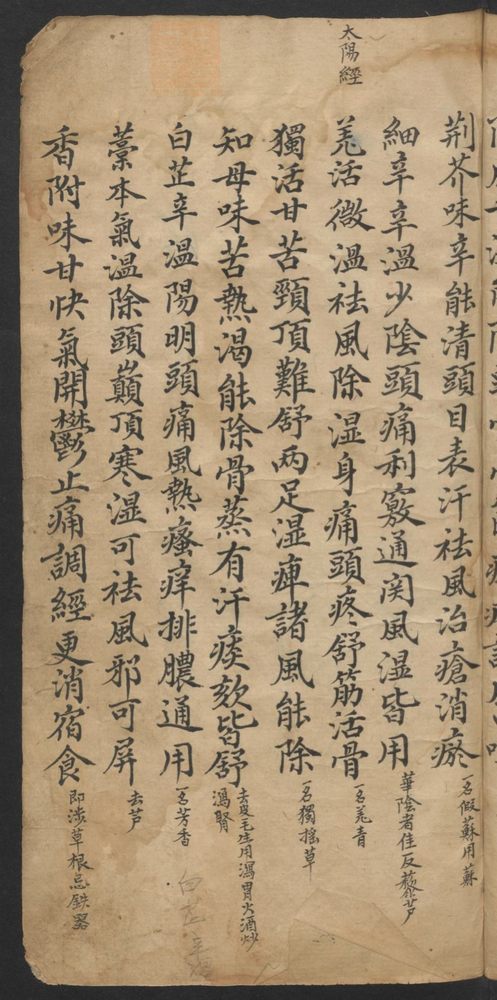 太陽經
荆芥味辛能清頭目表汗祛風治瘡消瘀
一名假蘇用蘇
細辛辛溫少陰頭痛利竅通関風濕皆用
華陰者佳反藜芦
羌活微溫祛風除湿身痛頭疼舒筋活骨
一名羌青
獨活甘苦頸項難舒两足湿痺諸風能除
一名獨搖草
知母味苦熱渴能除骨蒸有汗痰欬皆舒
去皮毛生用瀉胃火酒炒
瀉腎
白芷辛溫陽明頭痛風熱瘙痒排膿通用
一名芳香
藁本氣溫除頭巔頂寒湿可祛風邪可屏
去芦
香附味甘快氣開鬱止痛調經更消宿食
即涉草根忌鉄器
白芷辛